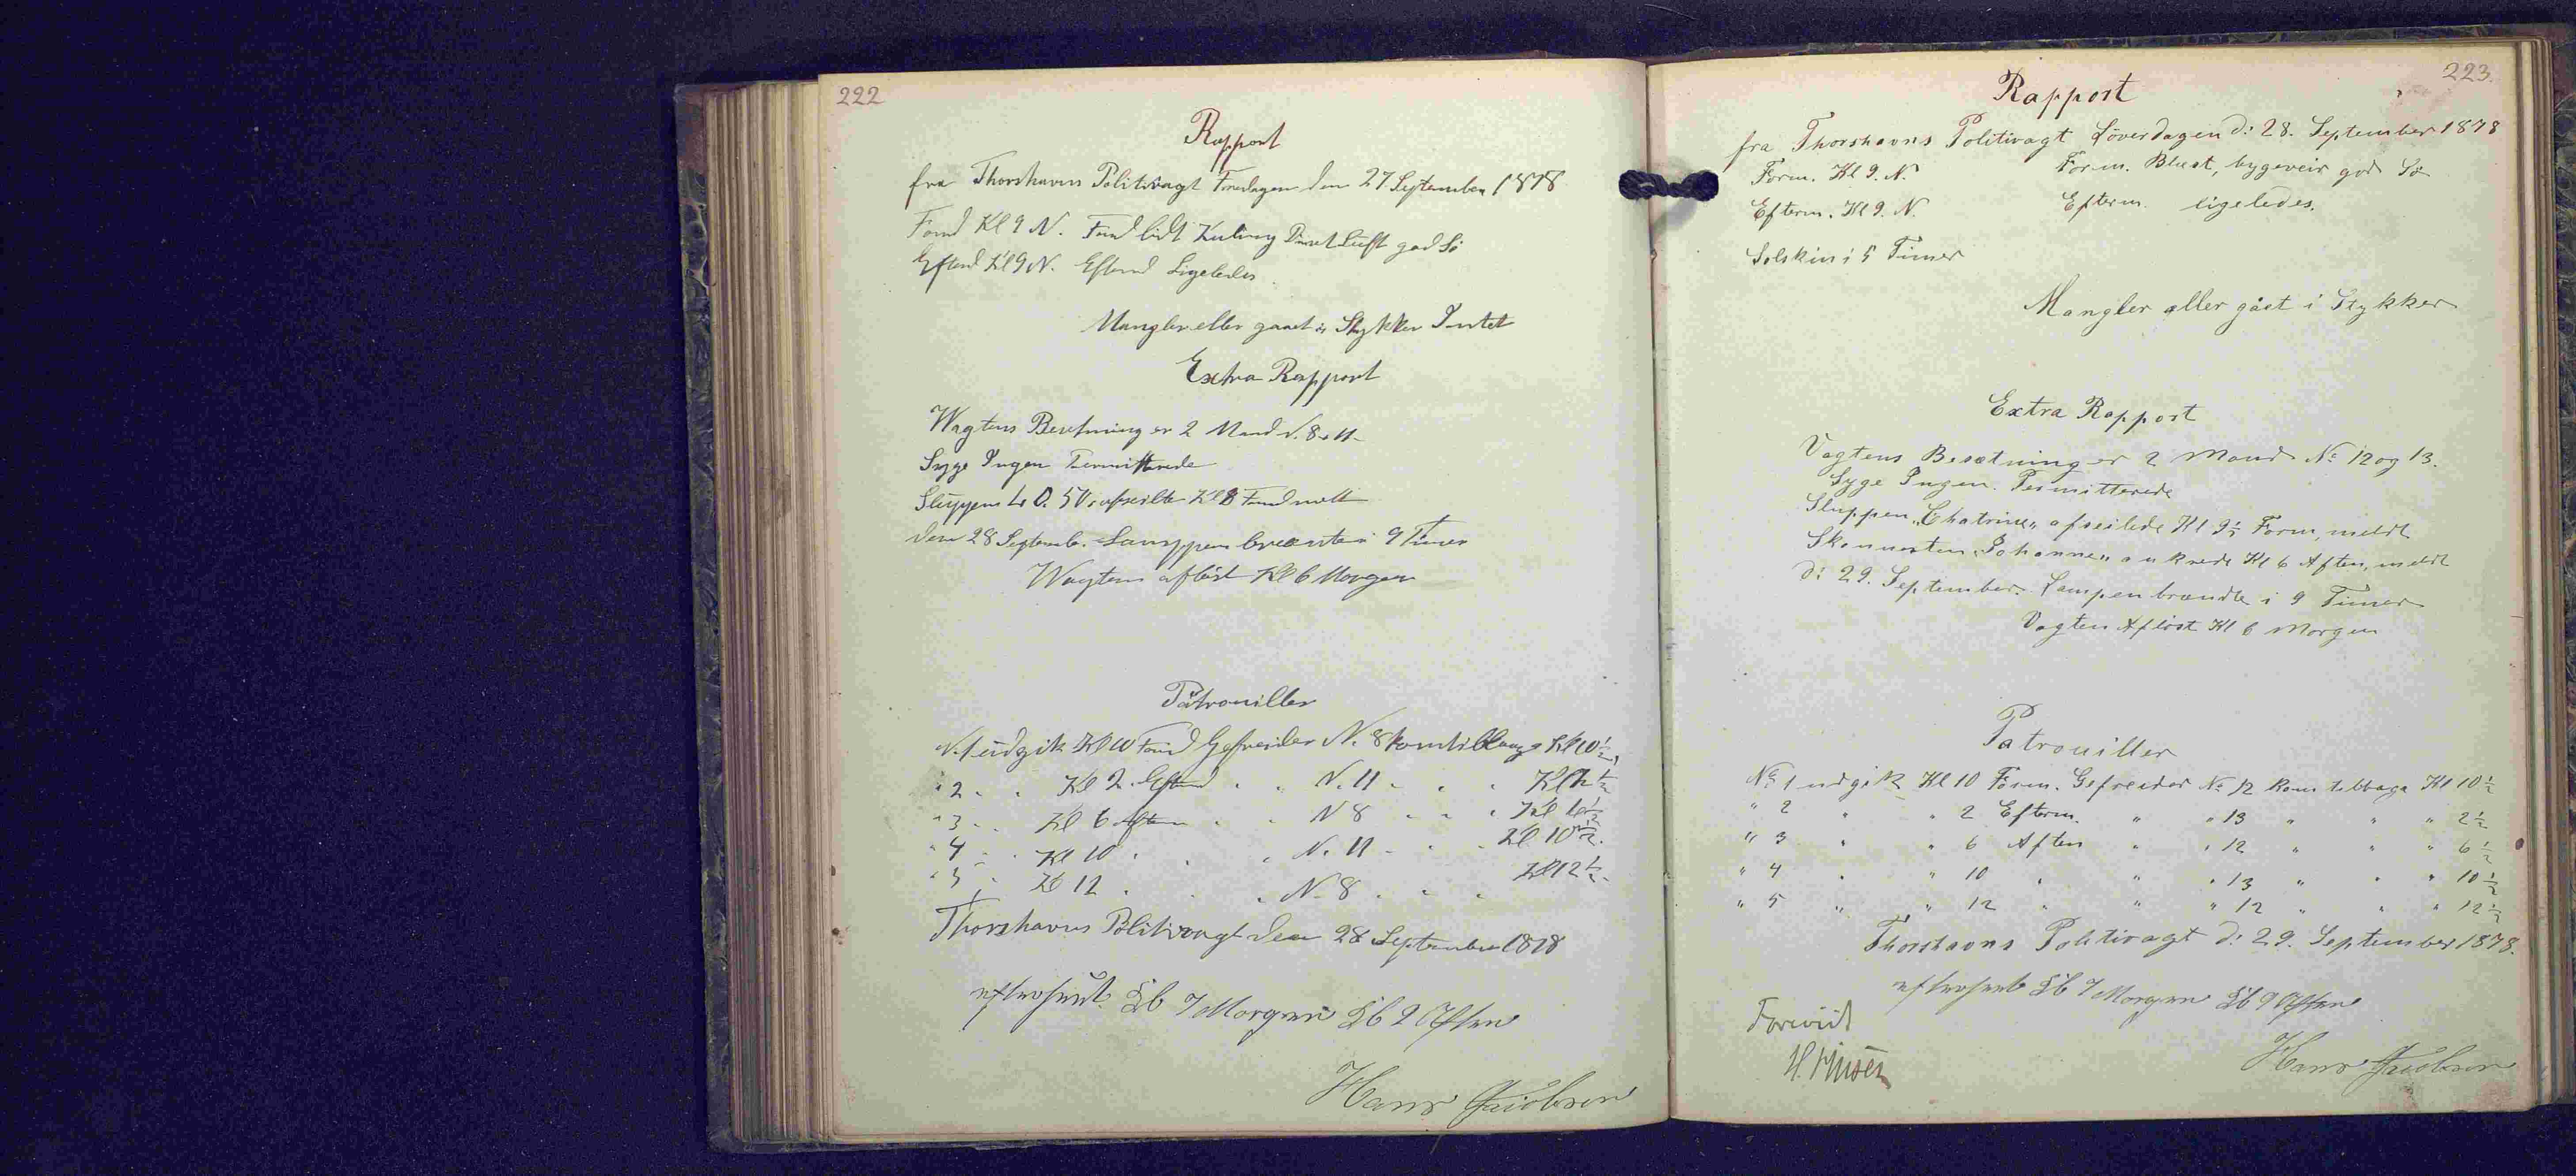 222
Rapport
fra Thorshavns Politivagt Fredagen den 27 September 1878
Form Kl 9 N. Form lidt Kuling Luft god Sö
Efterm Kl 9 N. Efterm Ligeledes
Mangler eller gaaet i Stykker Intet
Extra Rapport
Wagtens Besetning er 2 Mand N. 8 11
Syge Ingen Permitterede
Sluppen afseilte Kl 8 Form melt
den 28 Septemb. Lamppen brænte i 9 Timer
Wagten aflöst Kl 6 Morgen
Patrouiller
N. 1 udgik Kl 10 Form Gefreider N. 8 kom tilbage Kl 10 1/2
" 2 " " Kl 2 Efterm " " N. 11 " " " Kl 2 1/2
" 3 " " Kl 6 Aften " " N 8 " " " Kl 6 1/2
" 4 " " Kl 10 " " " N. 11 " " " Kl 10 1/2.
" 5 " Kl 12 " " " N. 8 " " " Kl 12 1/2.
Thorshavns Politivagt den 28 September 1878
efterseet Kl 7 Morgen Kl 2 Aften
Hans Jacobsen
223.
Rapport
fra Thorshavns Politivagt Löverdagen d: 28. September 1878
Form. Kl 9. N. Form. Blæst, bygeveir god Sö
Efterm. Kl 9. N. Efterm. ligeledes.
Solskin i 5 Timer
Mangler eller gået i Stykker
Extra Rapport
Vagtens Besætning er 2 Mand No 12 og 13.
Syge Ingen. Permitterede
Sluppen „Chatrine„ afseilede Kl 9 1/2 Form, meldt
Skonnerten „Johanne„ ankrede Kl 6 Aften, meldt
d: 29. September. Lampen brændte i 9 Timer
Vagten Aflöst Kl 6 Morgen
Patrouiller
No 1 udgik Kl 10 Form. Gefreider No 12 kom tilbage Kl 10 1/2
" 2 " " 2 Efterm. " " 13 " " " 2 1/2
" 3 " " 6 Aften " " 12 " " " 6 1/2
" 4 " " 10 " " " 13 " " " 10 1/2
" 5 " " 12 " " " 12 " " " 12 1/2
Thorshavns Politivagt d: 29. September 1878.
efterseet Kl 7 Morgen Kl 9 Aften
Foreviist
Hans Jacobsen